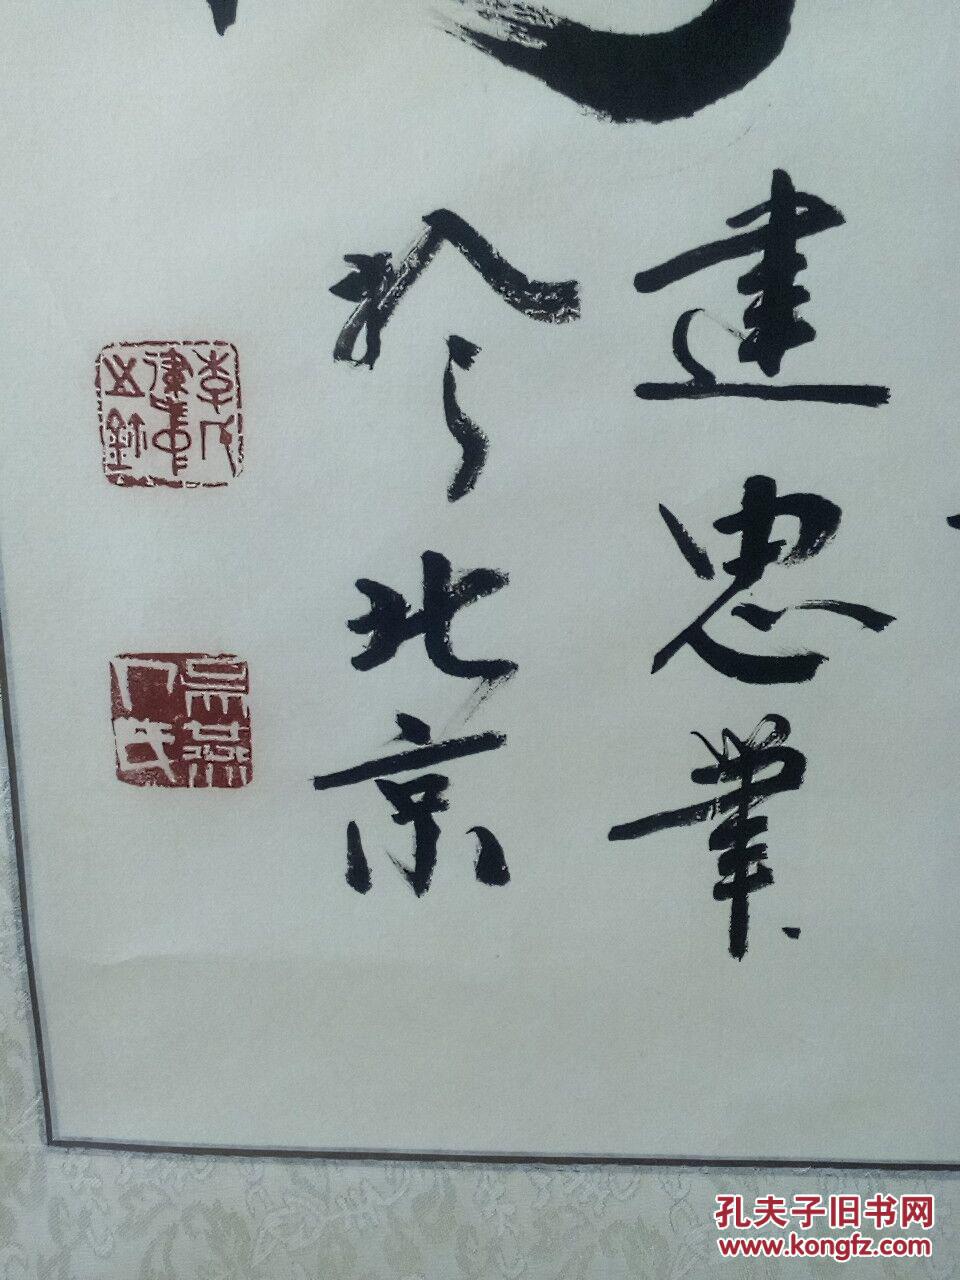 建忠業
於北京
吴燕
人氏
孔夫子旧书网
www.kongfz.com